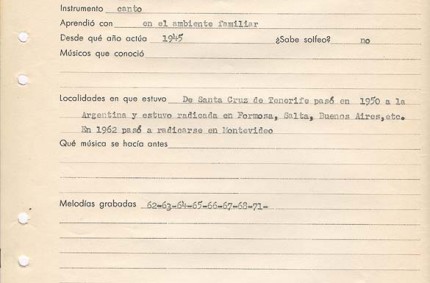 Instrumento canto
Aprendió con en el ambiente familiar
Desde qué año actúa 1945 ¿Sabe solfeo? no
Músicos que conoció
Localidades en que estuvo De Santa Cruz de Tenerife pasó en 1950 a la
Argentina y estuvo radicada en Formosa, Salta, Buenos Aires,etc.
En 1962 pasó a radicarse en Montevideo
Qué música se hacía antes
Melodías grabadas 62-63-64-65-66-67-68-71-